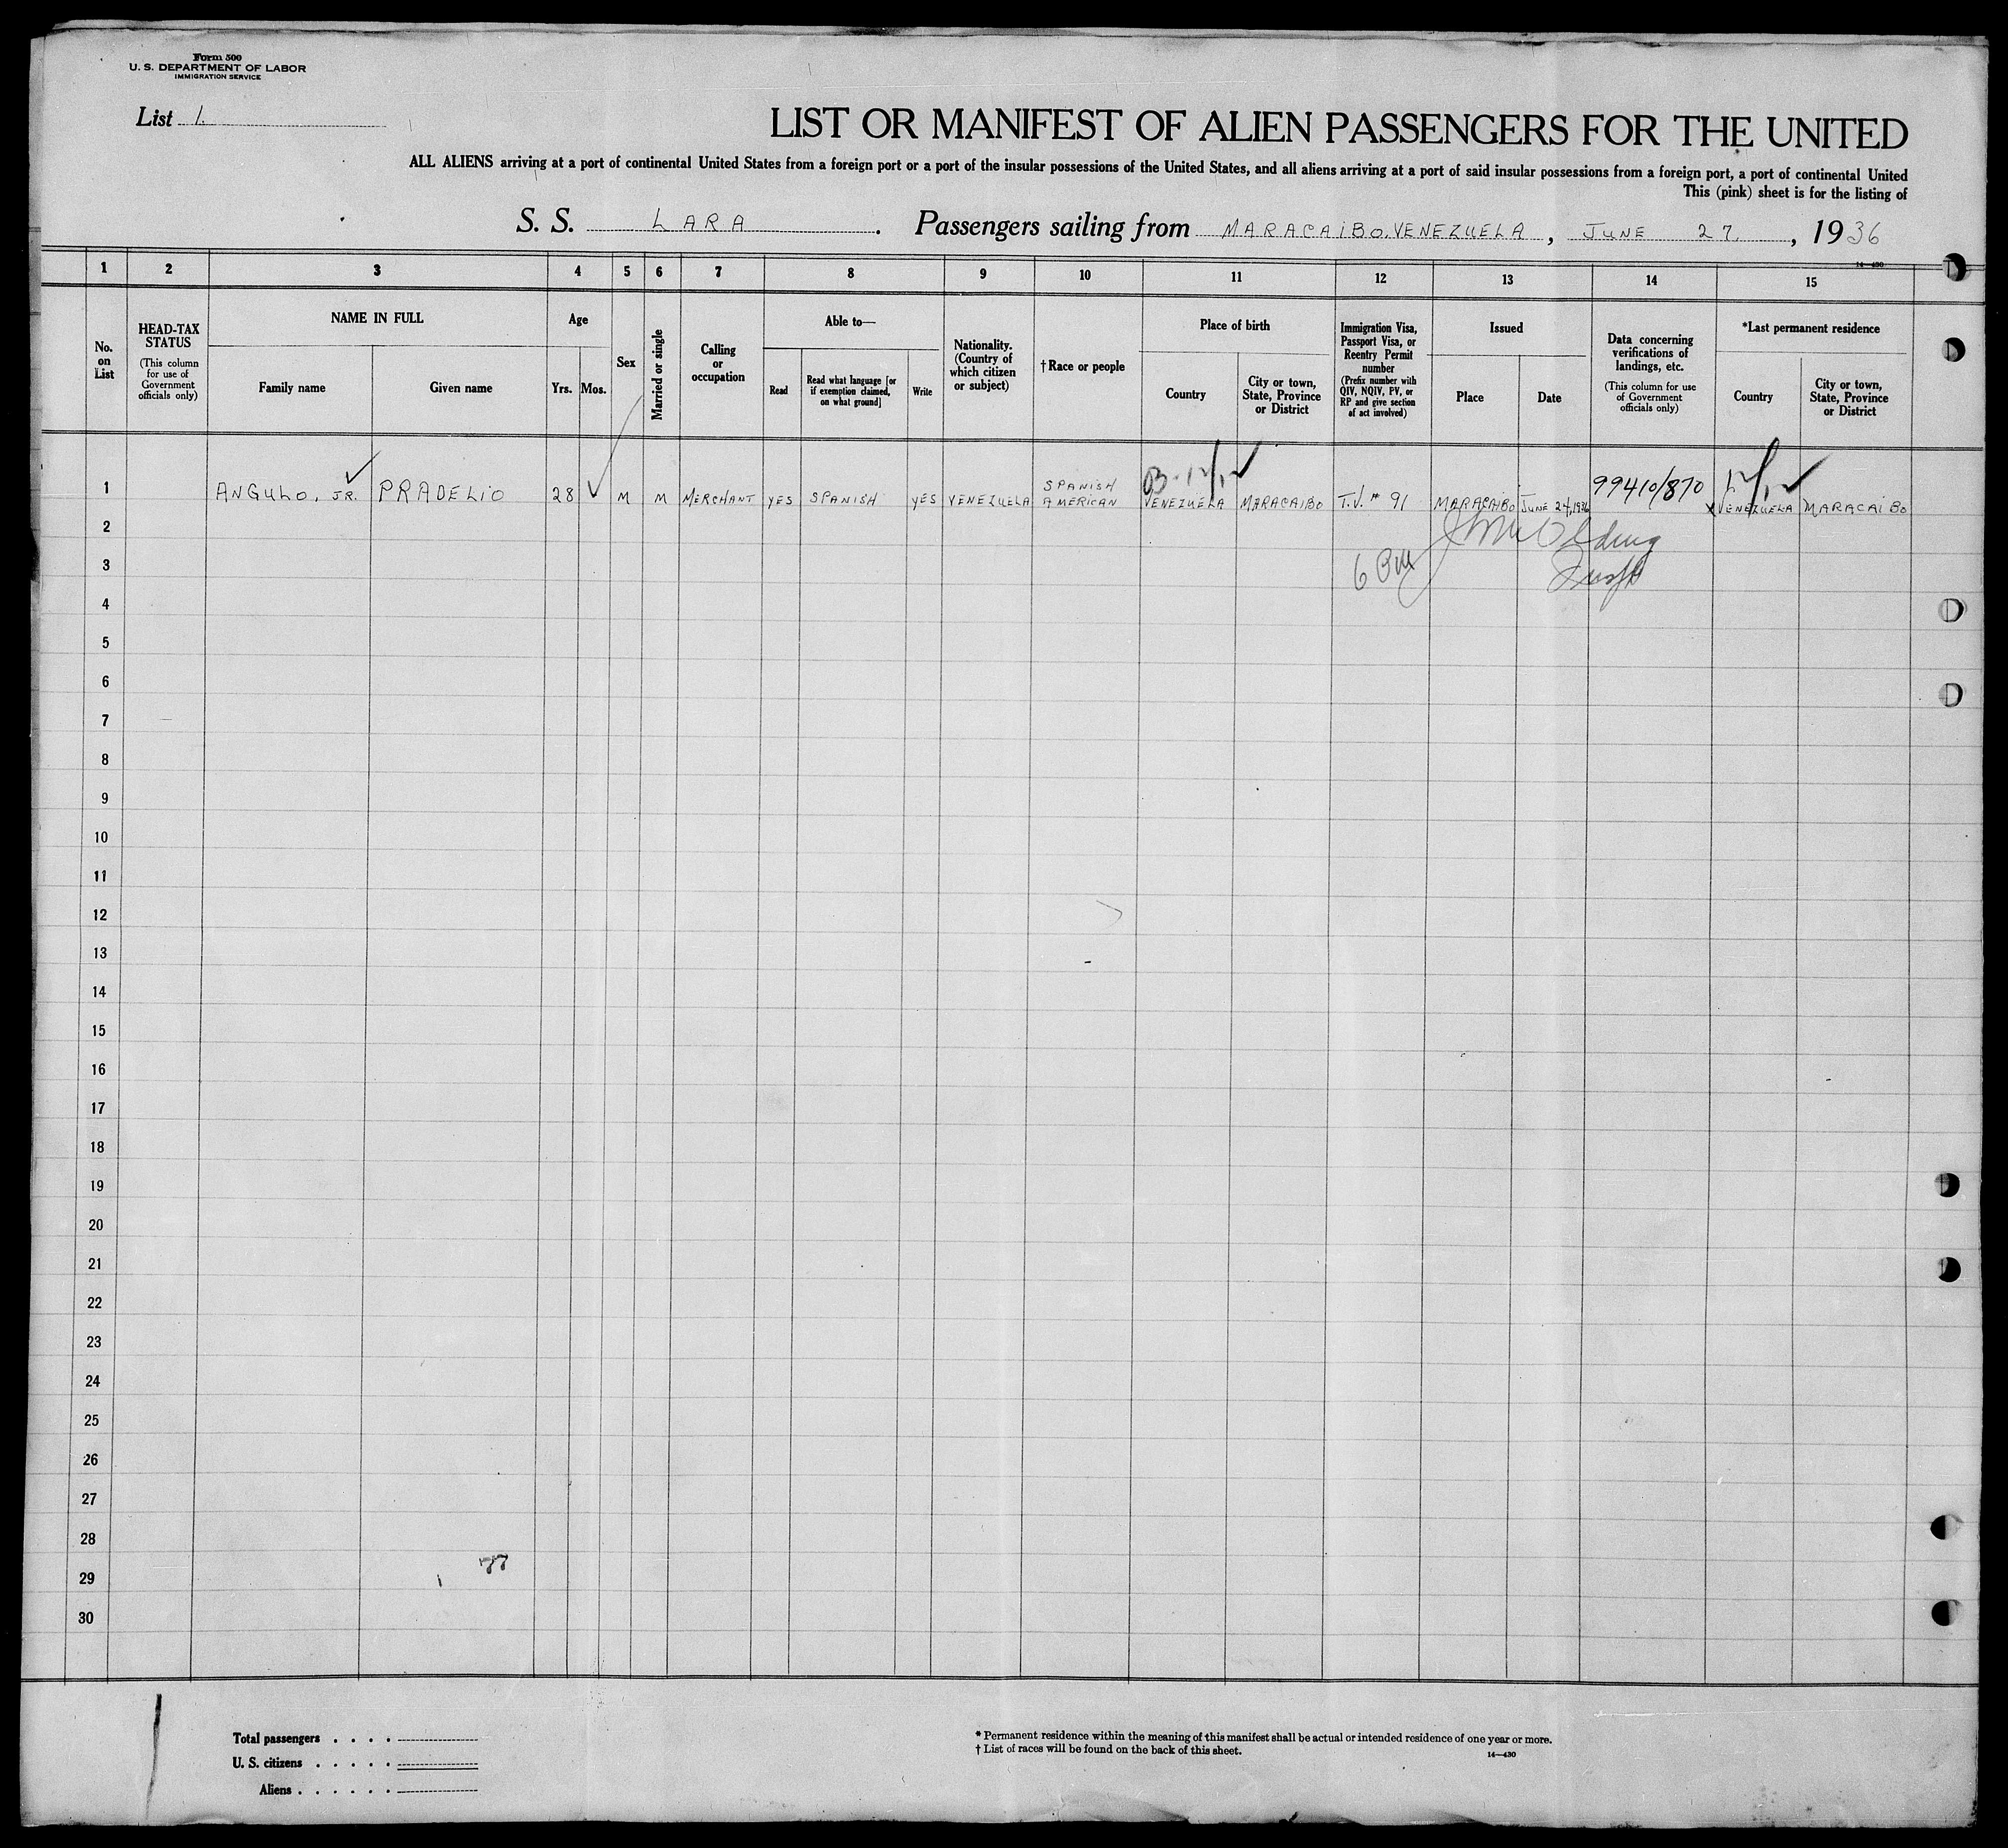 Form 500
U. S. DEPARTMENT OF LABOR
IMMIGRATION SERVICE
List 1.
LIST OR MANIFEST OF ALIEN PASSENGERS FOR THE UNITED
ALL ALIENS arriving at a port of continental United States from a foreign port or a port of the insular possessions of the United States, and all aliens arriving at a port of said insular possessions from a foreign port, a port of continental United
This (pink) sheet is for the listing of
S. S. LARA . Passengers sailing from MARACAIBO, VENEZUELA , JUNE 27. , 1936
14—430
1 2 3 4 5 6 7 8 9 10 11 12 13 14 15
No. on List
HEAD-TAX STATUS
(This column for use of Government officials only)
NAME IN FULL
Family name
Given name
Age
Yrs.
Mos.
Sex
Married or single
Calling or occupation
Able to—
Read
Read what language [or if exemption claimed, on what ground]
Write
Nationality. (Country of which citizen or subject)
†Race or people
Place of birth
Country
City or town, State, Province or District
Immigration Visa, Passport Visa, or Reentry Permit number
(Prefix number with QIV, NQIV, PV, or RP and give section of act involved)
Issued
Place
Date
Data concerning verifications of landings, etc.
(This column for use of Government officials only)
*Last permanent residence
Country
City or town, State, Province or District
1 ANGULO, JR. PRADELIO 28 M M MERCHANT YES SPANISH YES VENEZUELA SPANISH AMERICAN VENEZUELA MARACAIBO T.V. # 91 MARACAIBO JUNE 24, 1936 99410/870 VENEZUELA MARACAIBO
2
3
4
5
6
7
8
9
10
11
12
13
14
15
16
17
18
19
20
21
22
23
24
25
26
27
28
29
30
77
Total passengers . . . .
U. S. citizens . . . . .
Aliens . . . . . .
* Permanent residence within the meaning of this manifest shall be actual or intended residence of one year or more.
† List of races will be found on the back of this sheet.
14—430